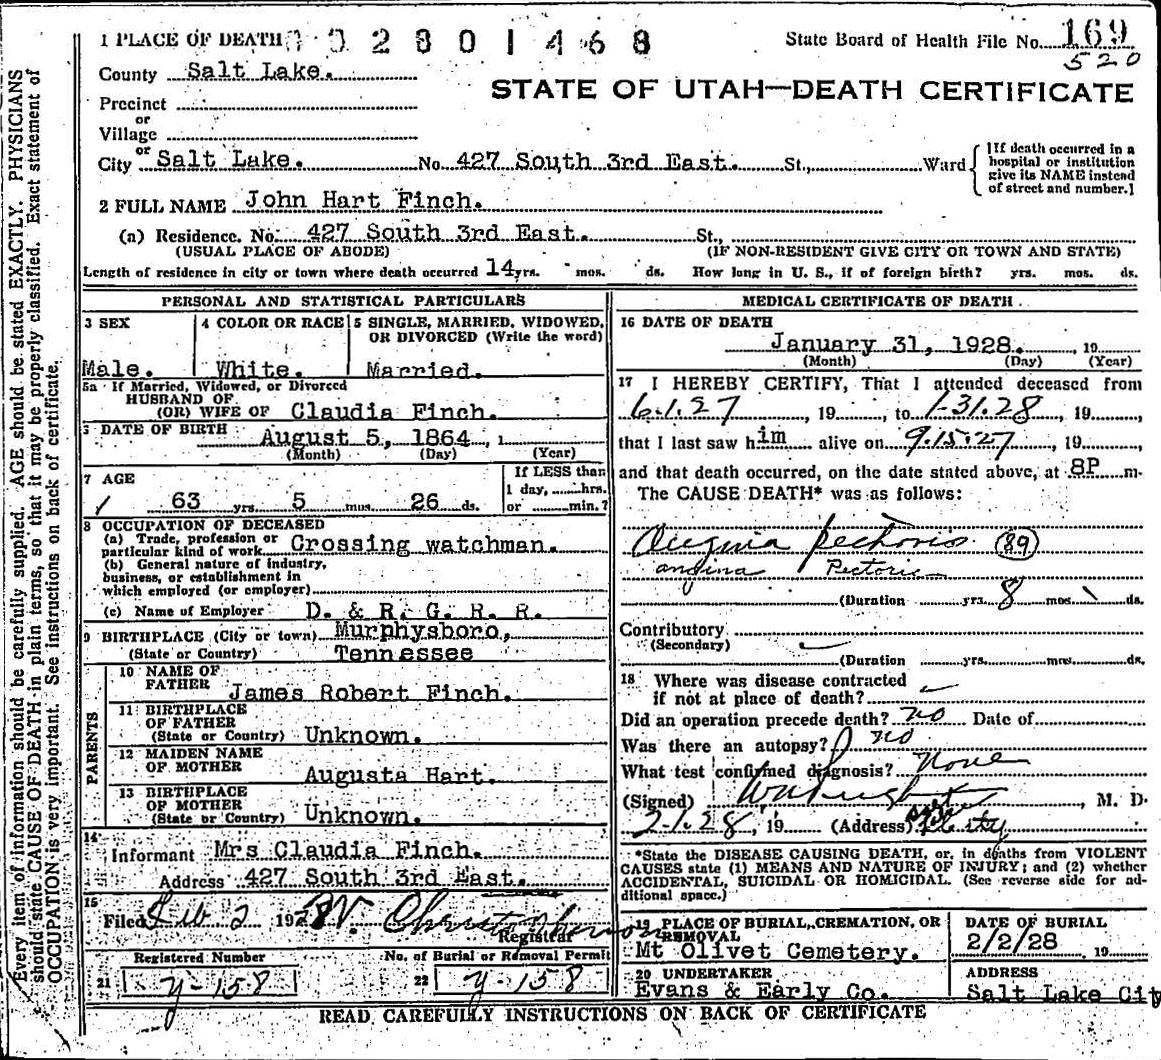 1 PLACE OF DEATH 2 8 0 1 4 6 8 State Board of Health File No. 169
520
County Salt Lake.
STATE OF UTAH—DEATH CERTIFICATE
Precinct
or
Village
or
City Salt Lake. No. 427 South 3rd East. St., Ward
[If death occurred in a hospital or institution give its NAME instead of street and number.]
2 FULL NAME John Hart Finch.
(a) Residence. No. 427 South 3rd East. St.,
(USUAL PLACE OF ABODE) (IF NON-RESIDENT GIVE CITY OR TOWN AND STATE)
Length of residence in city or town where death occurred 14 yrs. mos. ds. How long in U. S., if of foreign birth? yrs. mos. ds.
PERSONAL AND STATISTICAL PARTICULARS
3 SEX 4 COLOR OR RACE 5 SINGLE, MARRIED, WIDOWED,
OR DIVORCED (Write the word)
Male. White. Married.
5a If Married, Widowed, or Divorced
HUSBAND OF
(OR) WIFE OF Claudia Finch.
6 DATE OF BIRTH August 5, 1864, 1
(Month) (Day) (Year)
7 AGE If LESS than
1 day, hrs.
63 yrs. 5 mos. 26 ds. or min.?
8 OCCUPATION OF DECEASED
(a) Trade, profession or
particular kind of work Crossing watchman.
(b) General nature of industry,
business, or establishment in
which employed (or employer)
(c) Name of Employer D. & R. G. R. R.
9 BIRTHPLACE (City or town) Murphysboro,
(State or Country) Tennessee
PARENTS
10 NAME OF
FATHER James Robert Finch.
11 BIRTHPLACE
OF FATHER
(State or Country) Unknown.
12 MAIDEN NAME
OF MOTHER Augusta Hart.
13 BIRTHPLACE
OF MOTHER
(State or Country) Unknown.
14
Informant Mrs Claudia Finch.
Address 427 South 3rd East.
15
Filed Feb 2 1928
Registrar
Registered Number No. of Burial or Removal Permit
21 y-158 22 y-158
MEDICAL CERTIFICATE OF DEATH
16 DATE OF DEATH
January 31, 1928. , 19
(Month) (Day) (Year)
17 I HEREBY CERTIFY, That I attended deceased from
6.1.27, 19, to 1-31.28, 19,
that I last saw him alive on 9.15.27, 19,
and that death occurred, on the date stated above, at 8P m.
The CAUSE DEATH* was as follows:
Angina pectoris 89
angina Pectoris
(Duration yrs. 8 mos. ds.
Contributory
(Secondary)
(Duration yrs. mos. ds.
18 Where was disease contracted
if not at place of death?
Did an operation precede death? no Date of
Was there an autopsy? no
What test confirmed diagnosis? None
(Signed) , M. D.
2-1.28, 19 (Address) City
*State the DISEASE CAUSING DEATH, or, in deaths from VIOLENT
CAUSES state (1) MEANS AND NATURE OF INJURY; and (2) whether
ACCIDENTAL, SUICIDAL OR HOMICIDAL. (See reverse side for ad-
ditional space.)
19 PLACE OF BURIAL, CREMATION, OR REMOVAL DATE OF BURIAL
Mt Olivet Cemetery. 2/2/28 19
20 UNDERTAKER ADDRESS
Evans & Early Co. Salt Lake City
READ CAREFULLY INSTRUCTIONS ON BACK OF CERTIFICATE
Every item of information should be carefully supplied. AGE should be stated EXACTLY. PHYSICIANS
should state CAUSE OF DEATH in plain terms, so that it may be properly classified. Exact statement of
OCCUPATION is very important. See instructions on back of certificate.